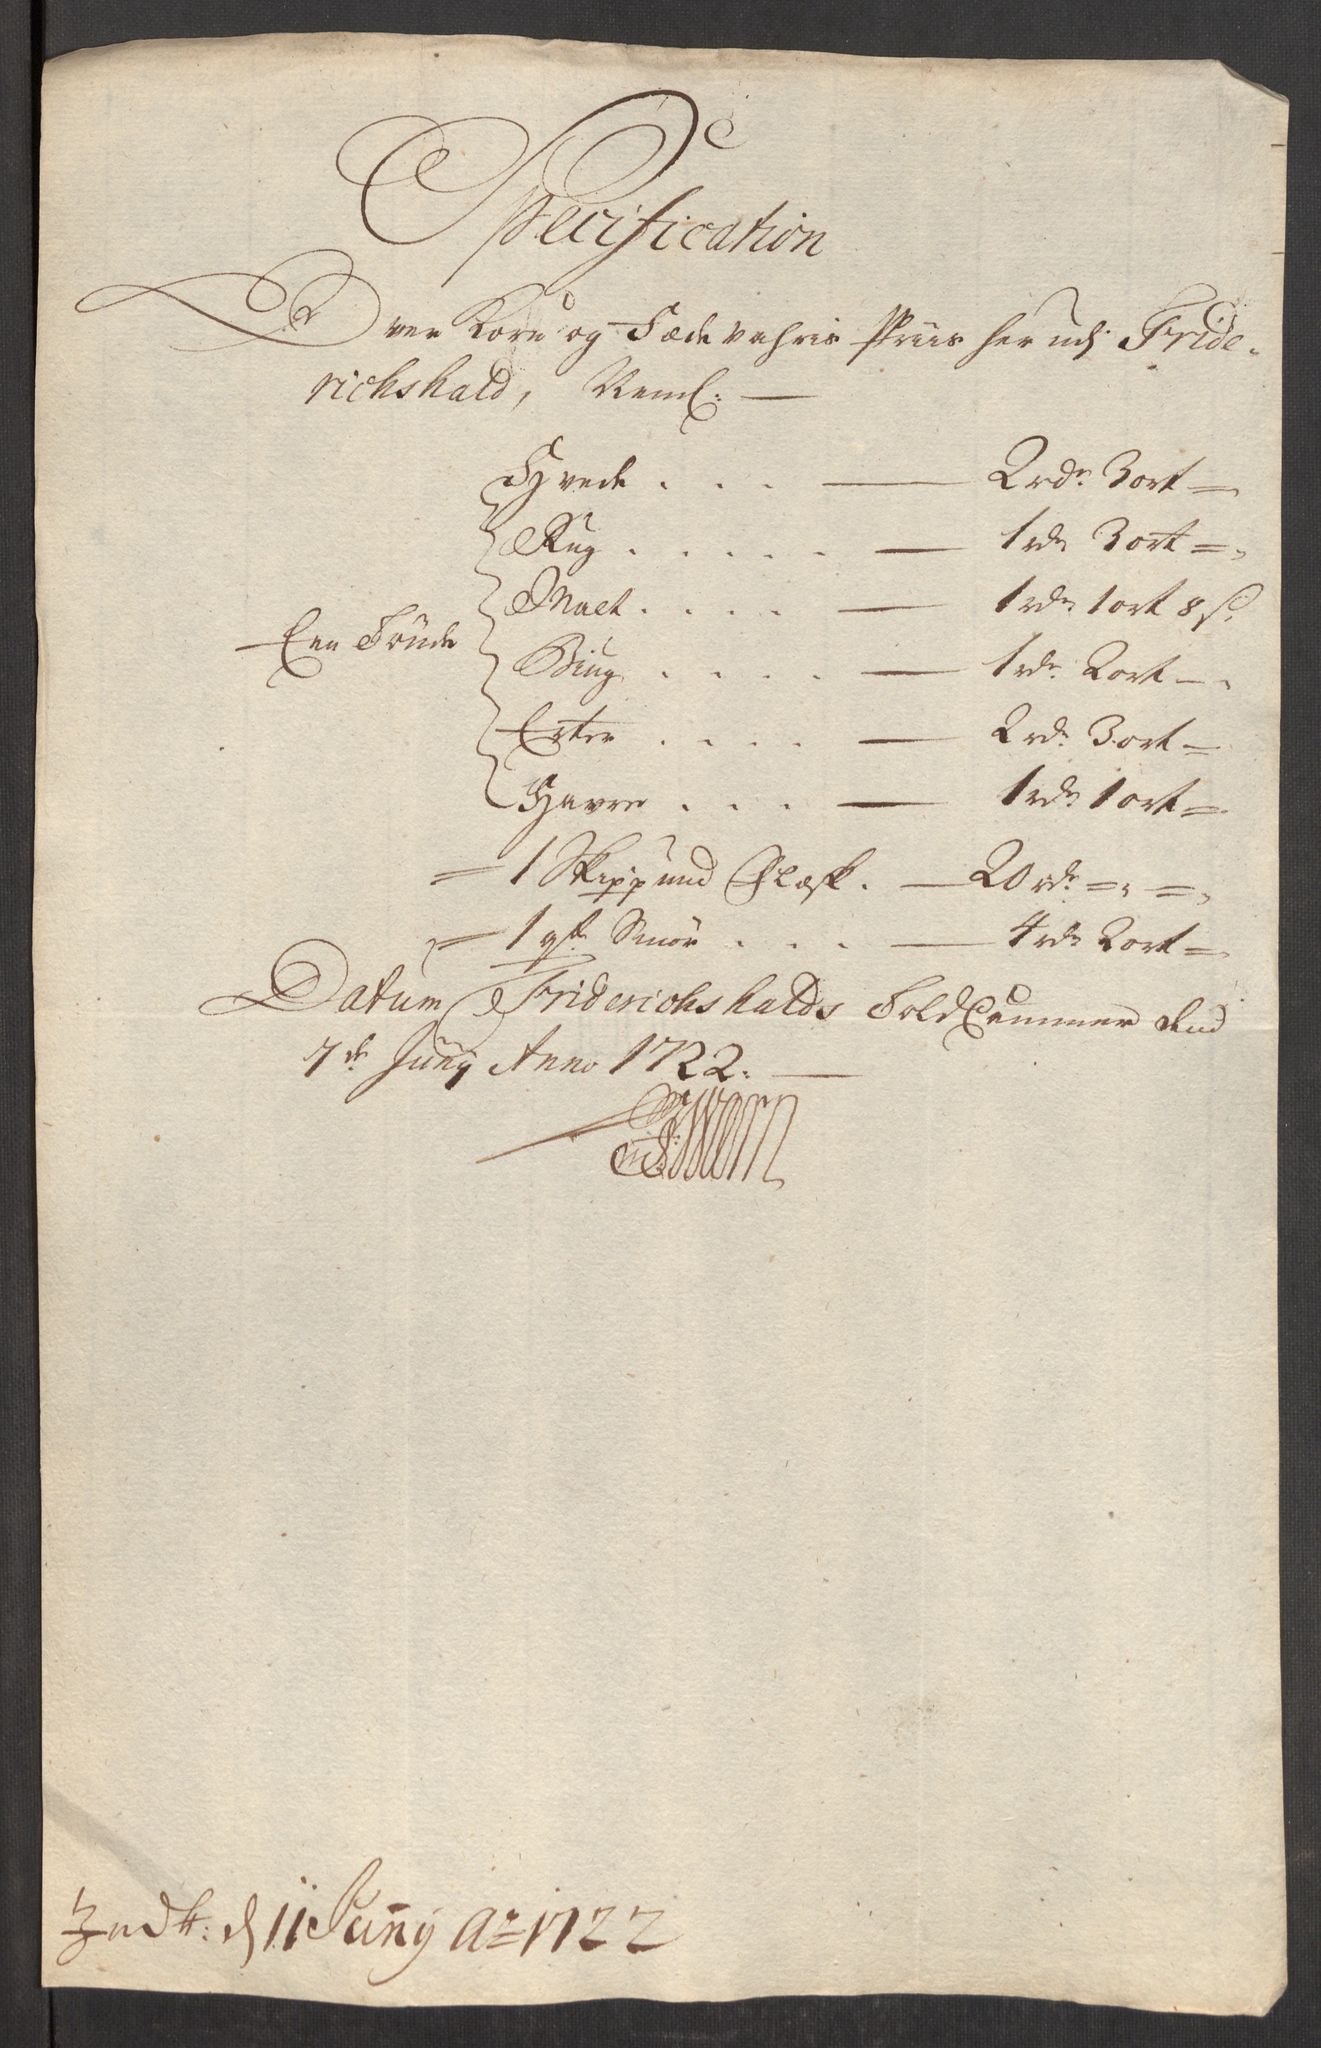 Specification
Over Korn og Fæde vahris Priis her udj Fride-
richshald, Neml: —
Hvede . . . — 2 rdr 3 ort =
Rug . . . . . — 1 rdr 3 ort =
Malt . . . . — 1 rdr 1 ort 8 s.
Een Tönde
Biug . . . . — 1 rdr 2 ort —
Erter . . . . — 2 rdr 3 ort —
Havre . . . — 1 rdr 1 ort =
= 1 Skippund Flæsk . — 20 rdr = =
= 1 Smör . . . — 4 rdr 2 ort =
Datum Friderichshalds Told Cammer dend
7de Junÿ Anno 1722. —
Indk: d 11 Junÿ Ao 1722